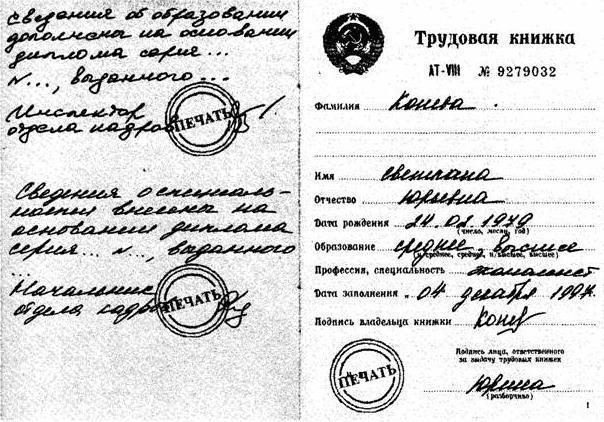 Сведения об образовании
дополнены на основании
диплома серия...
№..., выданного...
Инспектор
отдела кадров
ПЕЧАТЬ
Сведения о специаль-
ности внесены на
основании диплома
серия... №..., выданного
...
Начальник
отдела кадров
ПЕЧАТЬ
Трудовая книжка
АТ-VIII № 9279032
Фамилия Конева
Имя Светлана
Отчество Юрьевна
Дата рождения 24.08.1979
(число, месяц, год)
Образование среднее, высшее
(н/среднее, среднее, н/высшее, высшее)
Профессия, специальность экономист
Дата заполнения "04" декабря 1997г.
Подпись владельца книжки Конев
ПЕЧАТЬ
Подпись лица, ответственного
за выдачу трудовых книжек
Юрина
(разборчиво)
1